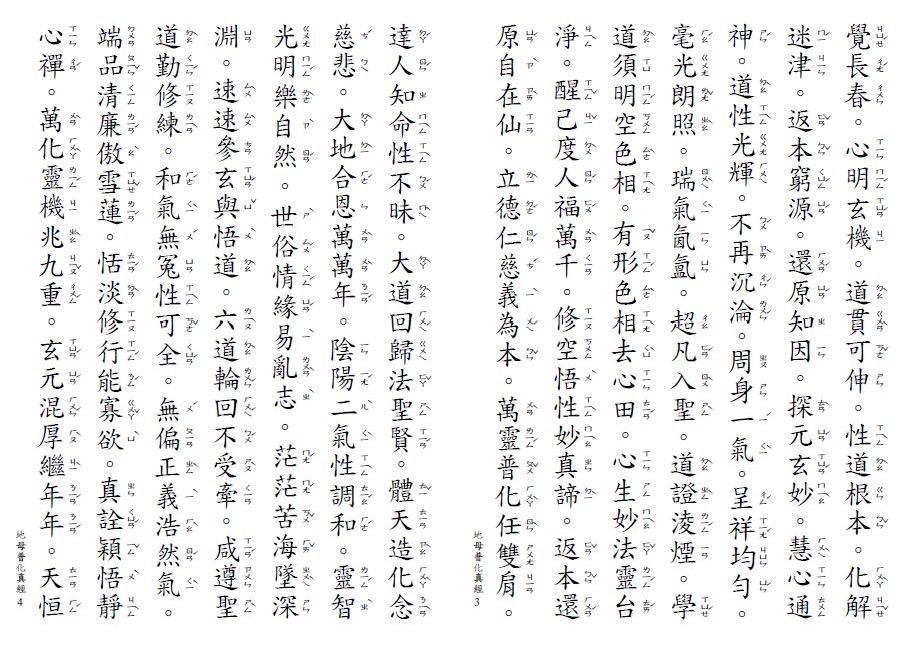 覺長春。心明玄機。道貫可伸。性道根本。化解
迷津。返本窮源。還原知因。探元玄妙。慧心通
神。道性光輝。不再沉淪。周身一氣。呈祥均勻。
毫光朗照。瑞氣氤氳。超凡入聖。道證淩煙。學
道須明空色相。有形色相去心田。心生妙法靈台
淨。醒己度人福萬千。修空悟性妙真諦。返本還
原自在仙。立德仁慈義為本。萬靈普化任雙肩。
地母普化真經 3
達人知命性不昧。大道回歸法聖賢。體天造化念
慈悲。大地合恩萬萬年。陰陽二氣性調和。靈智
光明樂自然。世俗情緣易亂志。茫茫苦海墜深
淵。速速參玄與悟道。六道輪回不受牽。咸遵聖
道勤修練。和氣無冤性可全。無偏正義浩然氣。
端品清廉傲雪蓮。恬淡修行能寡欲。真詮穎悟靜
心禪。萬化靈機兆九重。玄元混厚繼年年。天恒
地母普化真經 4